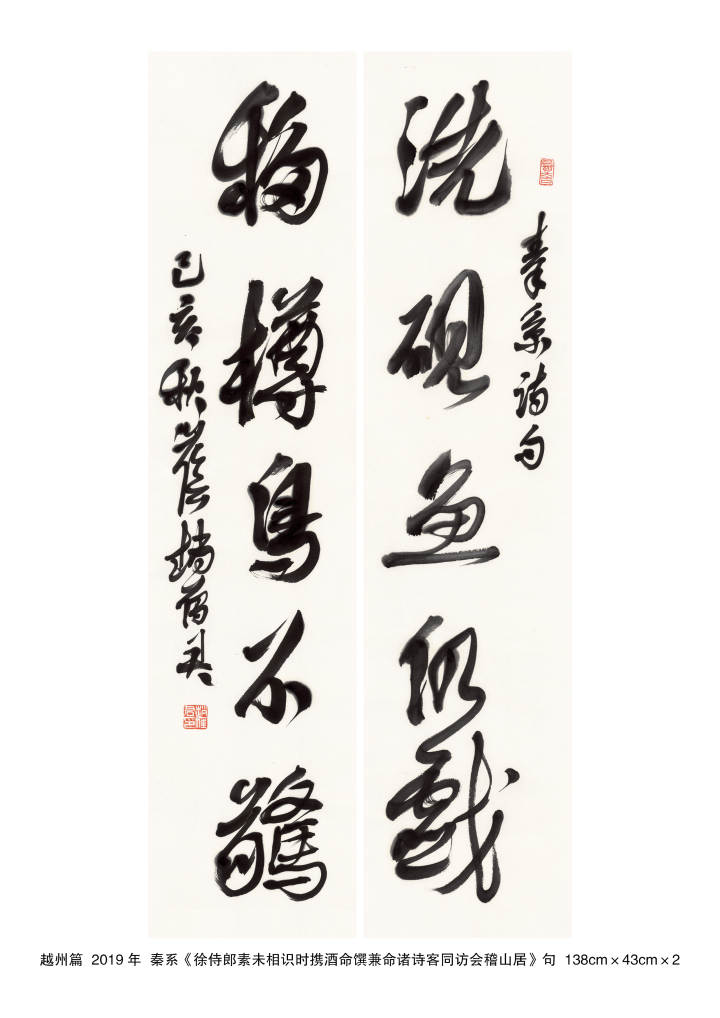 秦系詩句
洗硯魚仍戲
移樽鳥不驚
己亥秋
越州篇 2019 年 秦系《徐侍郎素未相识时携酒命馔兼命诸诗客同访会稽山居》句 138cm × 43cm × 2